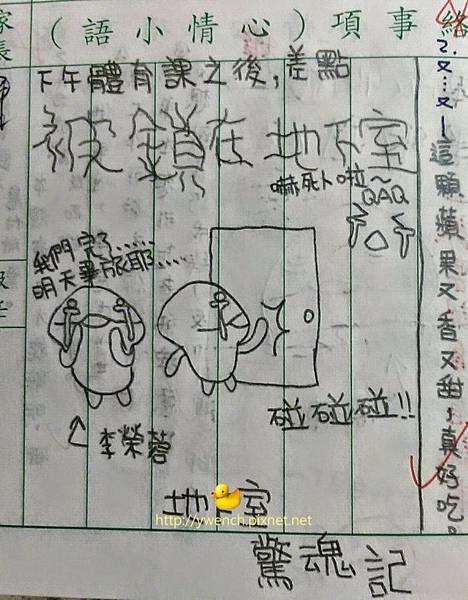 絡事項(心情小語)
家長
2.又…又—這顆蘋果又香又甜,真好吃。
下午體育課之後,差點
被鎖在地下室
嚇死人啦~
QAQ
我們完了......
明天畢旅耶....
李榮蓉
碰碰碰!!
地室
http://ywench.pixnet.net
驚魂記